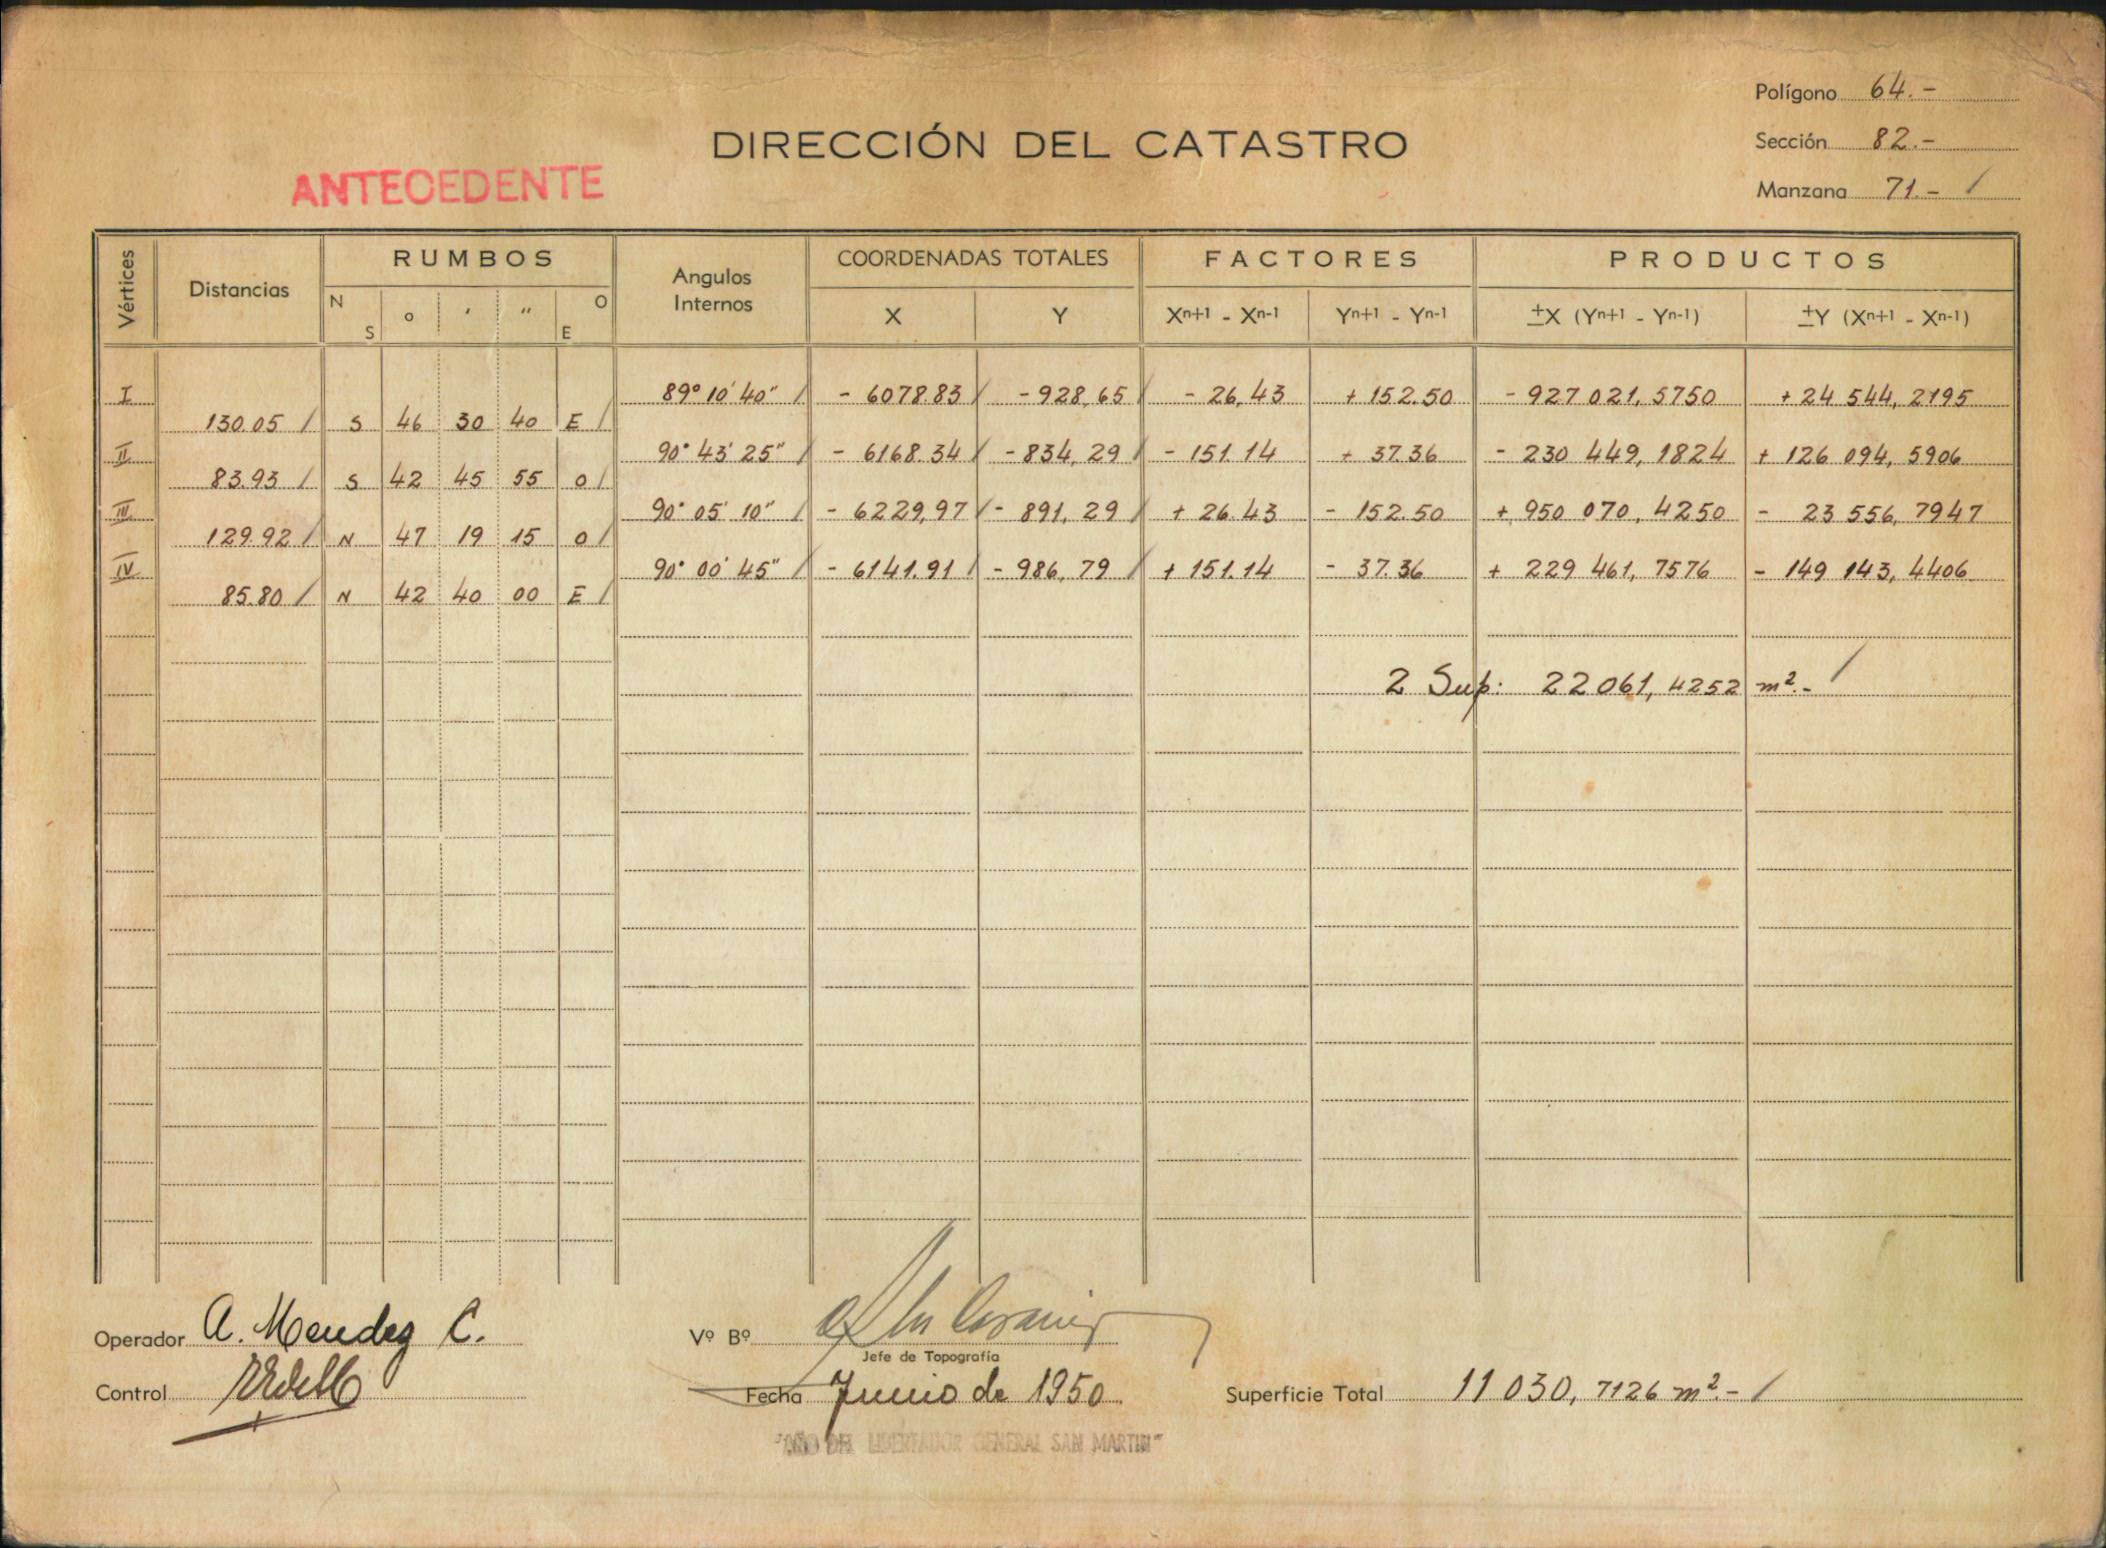 Polígono 64.-
DIRECCIÓN DEL CATASTRO
Sección 82.-
ANTECEDENTE
Manzana 71.- /
Vértices Distancias RUMBOS Angulos Internos COORDENADAS TOTALES FACTORES PRODUCTOS
N S o ' '' O E X Y Xn+1 - Xn-1 Yn+1 - Yn-1 ±X (Yn+1 - Yn-1) ±Y (Xn+1 - Xn-1)
I 89° 10' 40" / - 6078.83 / - 928,65 / - 26,43 + 152.50 - 927 021, 5750 + 24 544, 2195
130.05 / S 46 30 40 E /
II 90° 43' 25" / - 6168.34 / - 834, 29 / - 151.14 + 37.36 - 230 449, 1824 + 126 094, 5906
83.93 / S 42 45 55 O /
III 90° 05' 10" / - 6229,97 / - 891, 29 / + 26.43 - 152.50 + 950 070, 4250 - 23 556, 7947
129.92 / N 47 19 15 O /
IV 90° 00' 45" / - 6141.91 / - 986, 79 / + 151.14 - 37.36 + 229 461, 7576 - 149 143, 4406
85.80 / N 42 40 00 E /
2 Sup: 22 061, 4252 m².- /
Operador A. Mendez C.
Vº Bº
Jefe de Topografía
Control
Fecha Junio de 1950
Superficie Total 11 030, 7126 m².- /
"AÑO DEL LIBERTADOR GENERAL SAN MARTIN"